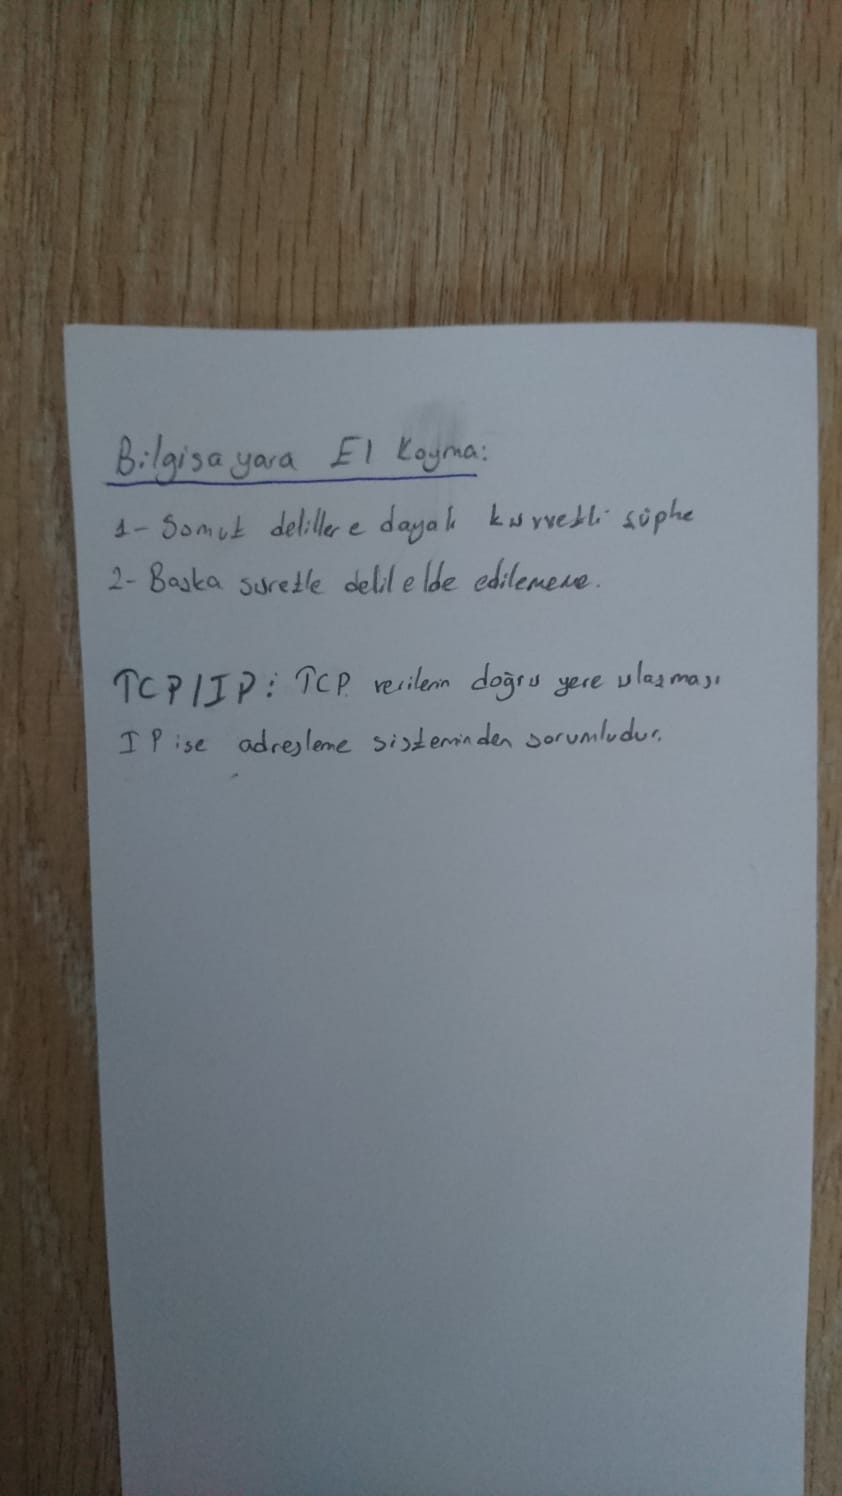 Bilgisayara El Koyma:
1- Somut delillere dayalı kuvvetli şüphe
2- Başka suretle delil elde edilememe.
TCP/IP: TCP verilerin doğru yere ulaşması
IP ise adresleme sisteminden sorumludur.